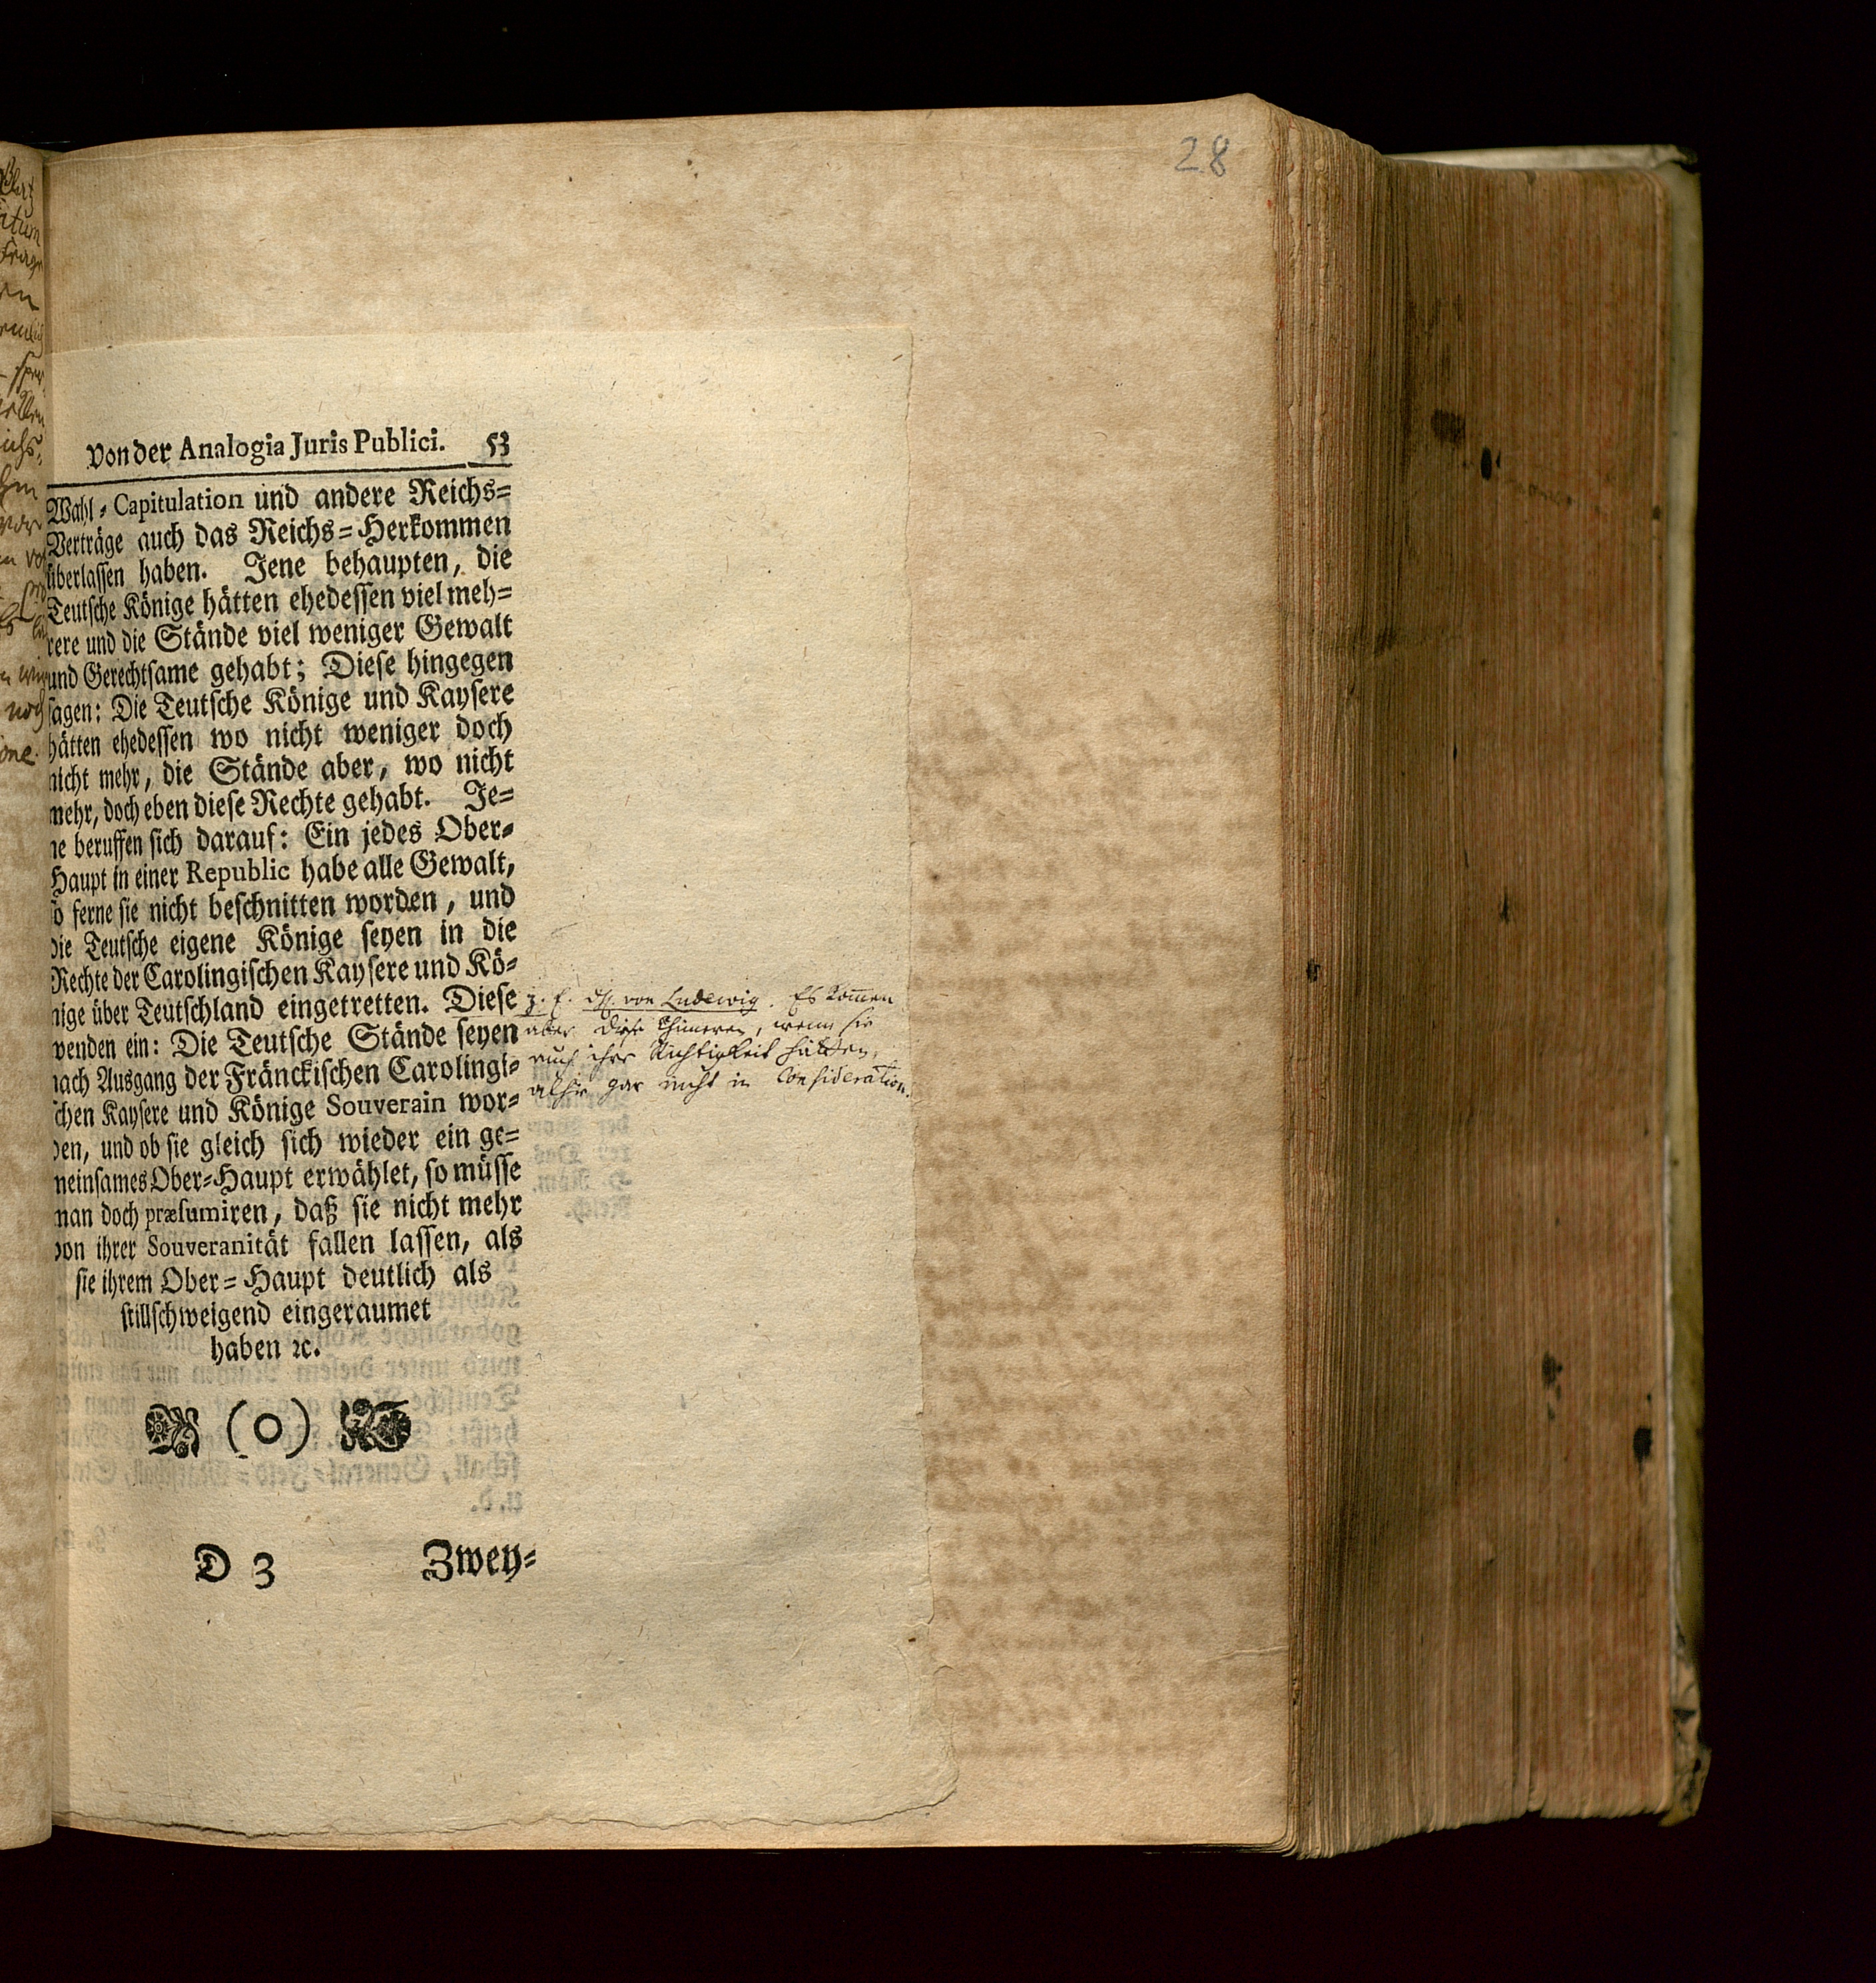 28
Von der Analogia Juris Publici. 53
Wahl-Capitulation und andere Reichs-
Verträge auch das Reichs-Herkommen
überlassen haben. Jene behaupten, die
Teutsche Könige hätten ehedessen viel meh-
rere und die Stände viel weniger Gewalt
und Gerechtsame gehabt; Diese hingegen
sagen: Die Teutsche Könige und Kaysere
hätten ehedessen wo nicht weniger doch
nicht mehr, die Stände aber, wo nicht
mehr, doch eben diese Rechte gehabt. Je-
ne beruffen sich darauf: Ein jedes Ober-
Haupt in einer Republic habe alle Gewalt,
so ferne sie nicht beschnitten worden, und
die Teutsche eigene Könige seyen in die
Rechte der Carolingischen Kaysere und Kö-
nige über Teutschland eingetretten. Diese
wenden ein: Die Teutsche Stände seyen
nach Ausgang der Fränckischen Carolingi-
schen Kaysere und Könige Souverain wor-
den, und ob sie gleich sich wieder ein ge-
meinsames Ober-Haupt erwählet, so müsse
man doch præsumiren, daß sie nicht mehr
von ihrer Souveranität fallen lassen, als
sie ihrem Ober-Haupt deutlich als
stillschweigend eingeraumet
haben ꝛc.
(O)
D 3 Zwey-
z. E. von Ludewig. Es kom̄en
aber diese Chimeren, wenn sie
auch ihre Richtigkeit hätten,
alhir gar nicht in Consideration.